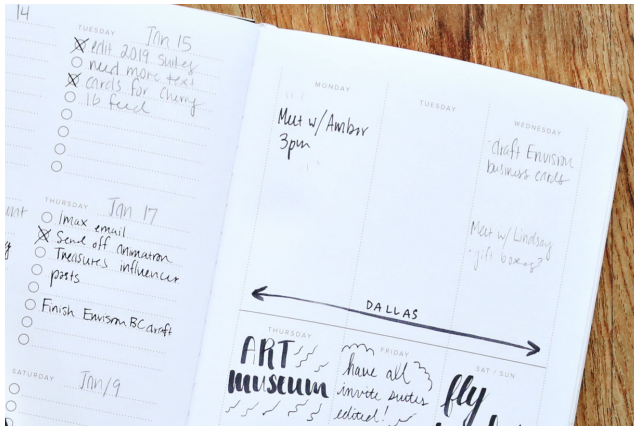 14
TUESDAY Jan 15
edit 2019 suites
need more text
cards for Cherry
ib feed
THURSDAY Jan 17
Imax email
Send off animation
Treasures influencer
posts
Finish Envision BC draft
SATURDAY Jan 19
MONDAY
Meet w/ Amber
3pm
TUESDAY
WEDNESDAY
draft Envision
business cards
Meet w/ Lindsay
gift boxes?
DALLAS
THURSDAY
ART
museum
FRIDAY
have all
invite suites
edited!
SAT / SUN
fly